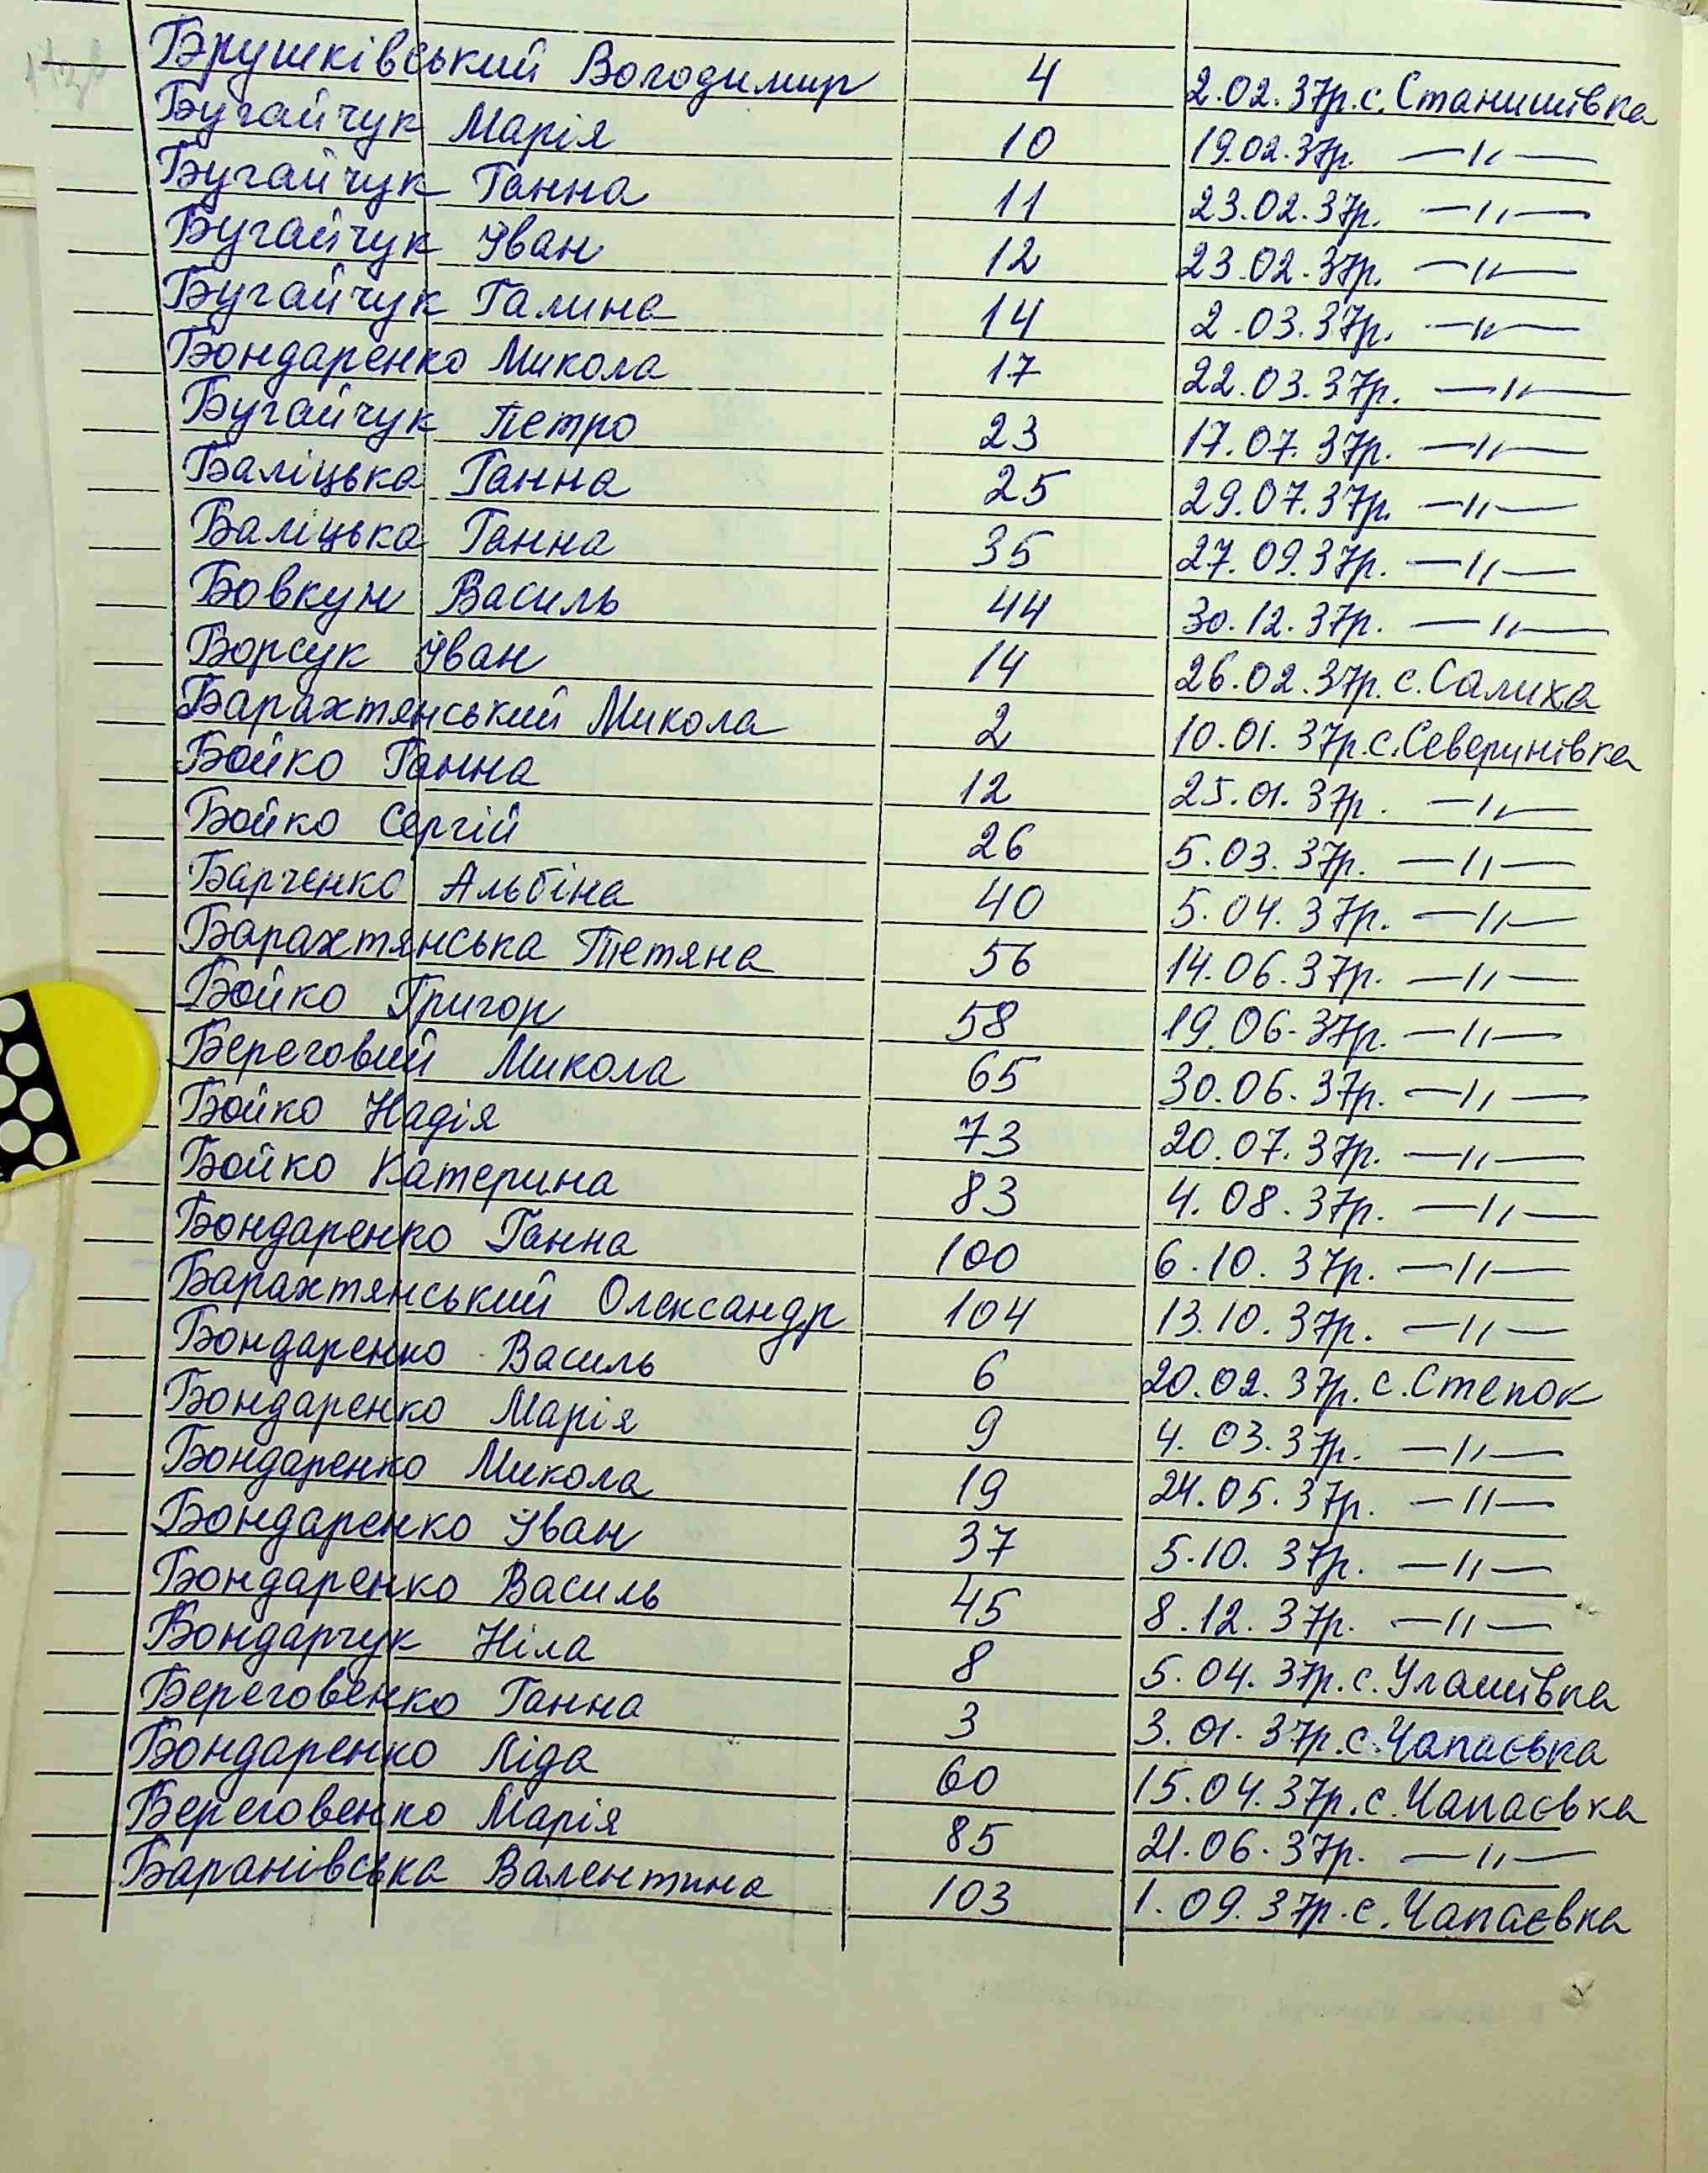 Брушківський Володимир 4 2.02.37р. с. Станишівка
Бугайчук Марія 10 19.02.37р. —〃—
Бугайчук Ганна 11 23.02.37р. —〃—
Бугайчук Іван 12 23.02.37р. —〃—
Бугайчук Галина 14 2.03.37р. —〃—
Бондаренко Микола 17 22.03.37р. —〃—
Бугайчук Петро 23 17.07.37р. —〃—
Баліцька Ганна 25 29.07.37р. —〃—
Баліцька Ганна 35 27.09.37р. —〃—
Бовкун Василь 44 30.12.37р. —〃—
Борсук Іван 14 26.02.37р. с. Салиха
Барахтянський Микола 2 10.01.37р. с. Северинівка
Бойко Ганна 12 25.01.37р. —〃—
Бойко Сергій 26 5.03.37р. —〃—
Барченко Альбіна 40 5.04.37р. —〃—
Барахтянська Тетяна 56 14.06.37р. —〃—
Бойко Григор 58 19.06.37р. —〃—
Береговий Микола 65 30.06.37р. —〃—
Бойко Надія 73 20.07.37р. —〃—
Бойко Катерина 83 4.08.37р. —〃—
Бондаренко Ганна 100 6.10.37р. —〃—
Барахтянський Олександр 104 13.10.37р. —〃—
Бондаренко Василь 6 20.02.37р. с. Степок
Бондаренко Марія 9 4.03.37р. —〃—
Бондаренко Микола 19 24.05.37р. —〃—
Бондаренко Іван 37 5.10.37р. —〃—
Бондаренко Василь 45 8.12.37р. —〃—
Бондарчук Ніла 8 5.04.37р. с. Улашівка
Береговенко Ганна 3 3.01.37р. с. Чапаєвка
Бондаренко Ліда 60 15.04.37р. с. Чапаєвка
Береговенко Марія 85 21.06.37р. —〃—
Баранівська Валентина 103 1.09.37р. с. Чапаєвка